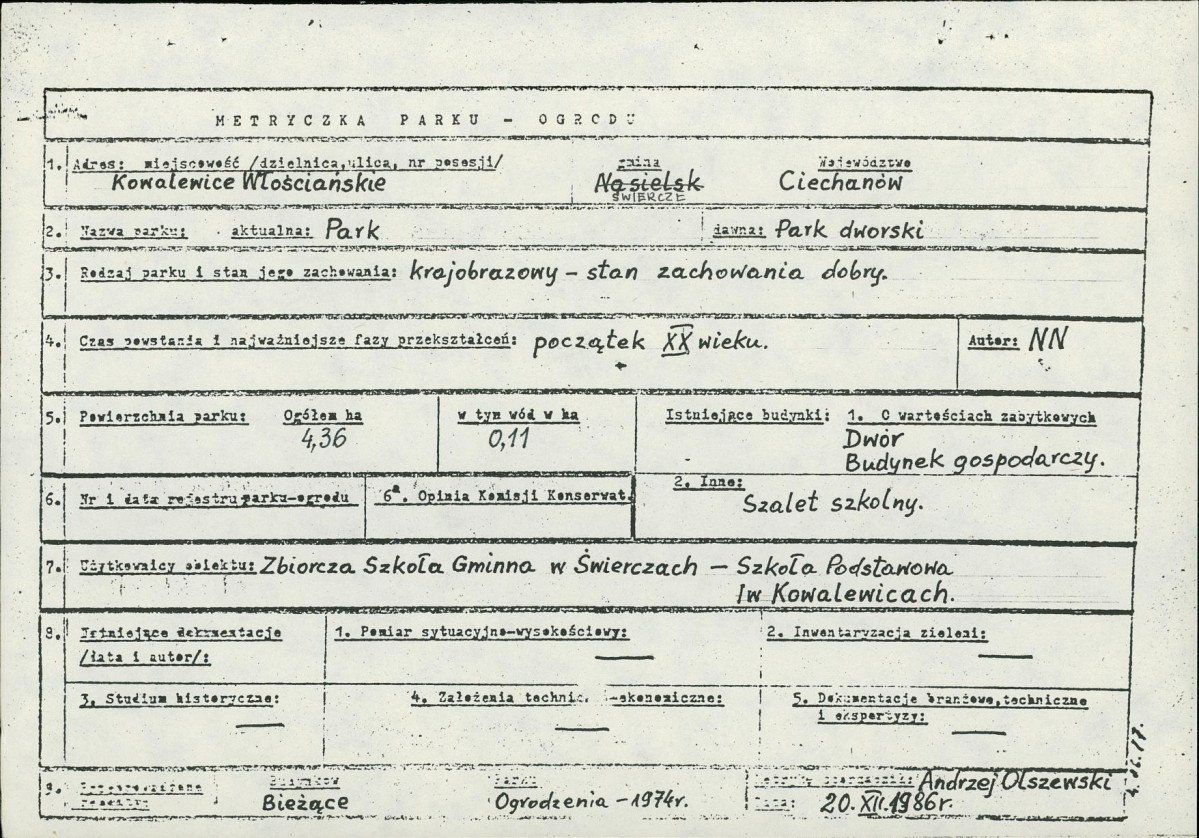 METRYCZKA PARKU - OGRODU
1. Adres: miejscowość /dzielnica, ulica, nr posesji/ gmina Województwo
Kowalewice Włościańskie Nasielsk Ciechanów
ŚWIERCZE
2. Nazwa parku: aktualna: Park dawna: Park dworski
3. Rodzaj parku i stan jego zachowania: krajobrazowy – stan zachowania dobry.
4. Czas powstania i najważniejsze fazy przekształceń: początek XX wieku. Autor: NN
5. Powierzchnia parku: Ogółem ha w tym wód w ha Istniejące budynki: 1. O wartościach zabytkowych
4,36 0,11 Dwór
Budynek gospodarczy.
6. Nr i data rejestru parku-ogrodu 6a. Opinia Komisji Konserwat. 2. Inne:
Szalet szkolny.
7. Użytkownicy obiektu: Zbiorcza Szkoła Gminna w Świerczach – Szkoła Podstawowa
w Kowalewicach.
8. Istniejące dokumentacje 1. Pomiar sytuacyjno-wysokościowy: 2. Inwentaryzacja zieleni:
/data i autor/: — —
3. Studium historyczne: 4. Założenia technic. -ekonomiczne: 5. Dokumentacje branżowe, techniczne
i ekspertyzy:
— — —
9. Przeprowadzone Budynków Parku Andrzej Olszewski
remonty Bieżące Ogrodzenia – 1974r. Data: 20.XII.1986r.